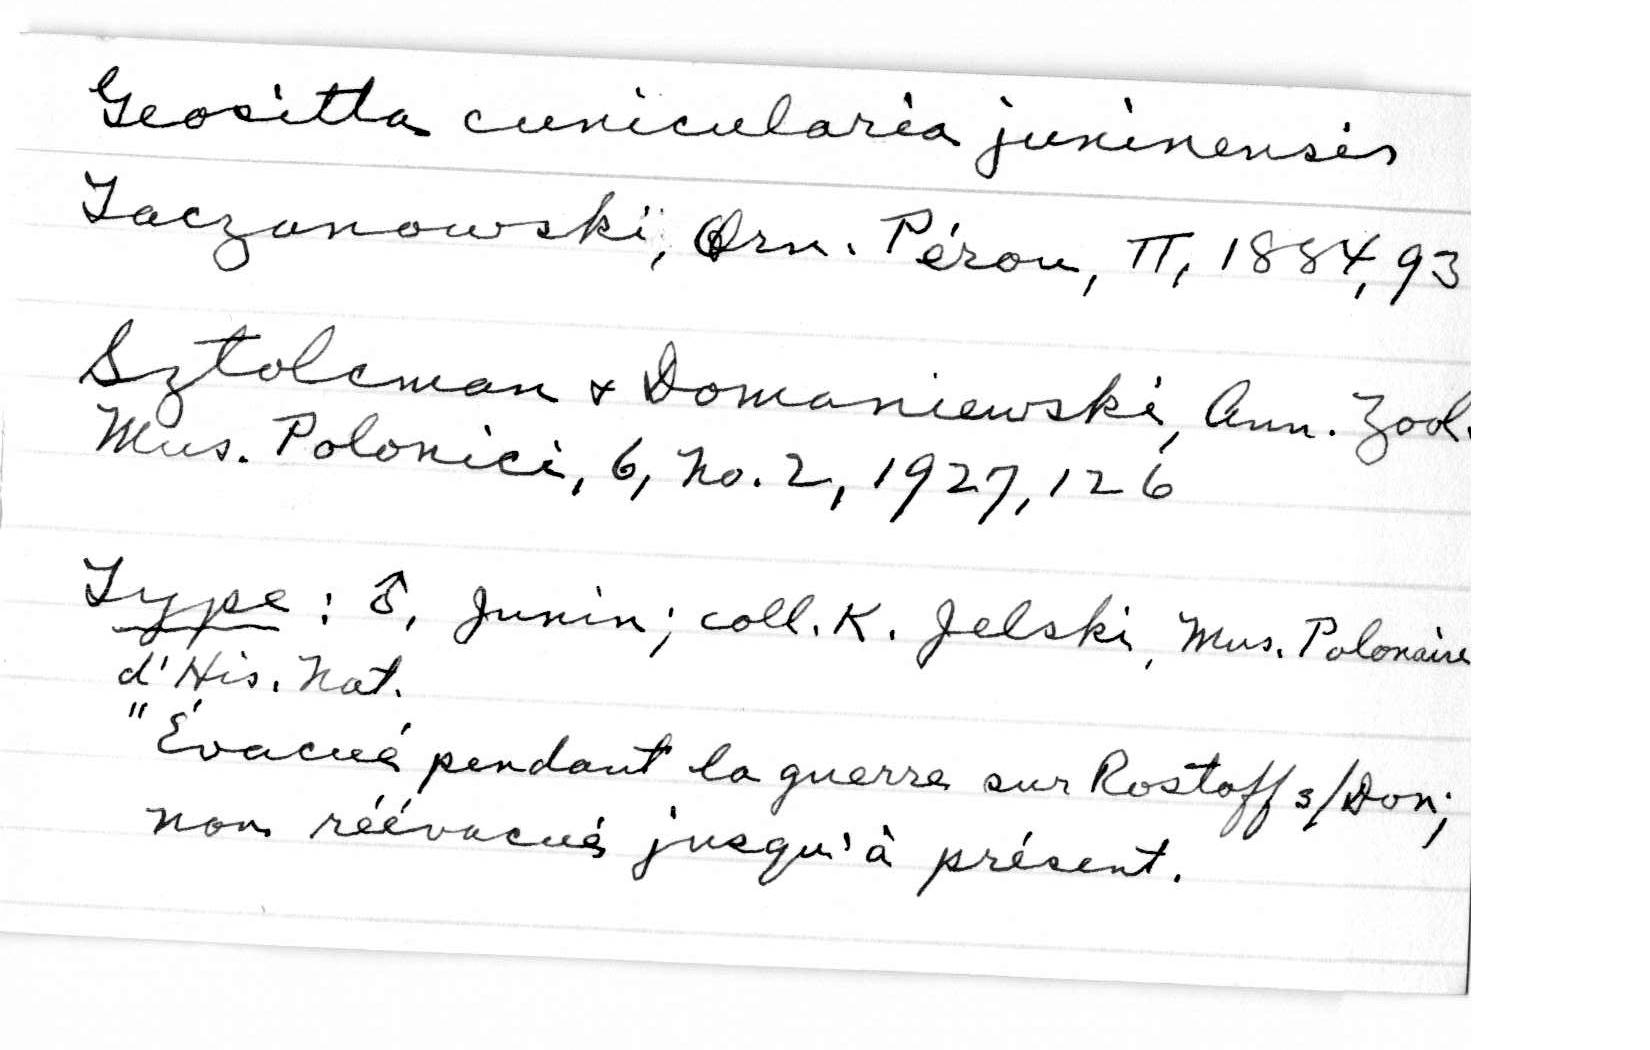 Geositta cunicularia juninensis
Taczanowski, Orn. Pérou, II, 1884, 93
Sztolcman & Domaniewski, Ann. Zool.
Mus. Polonici, 6, no. 2, 1927, 126
Type : ♂, Junin; coll. K. Jelski, Mus. Polonaire
d'His. Nat.
"Évacué pendant la guerre sur Rostoff s/Don;
non réévacué jusqu'à présent.